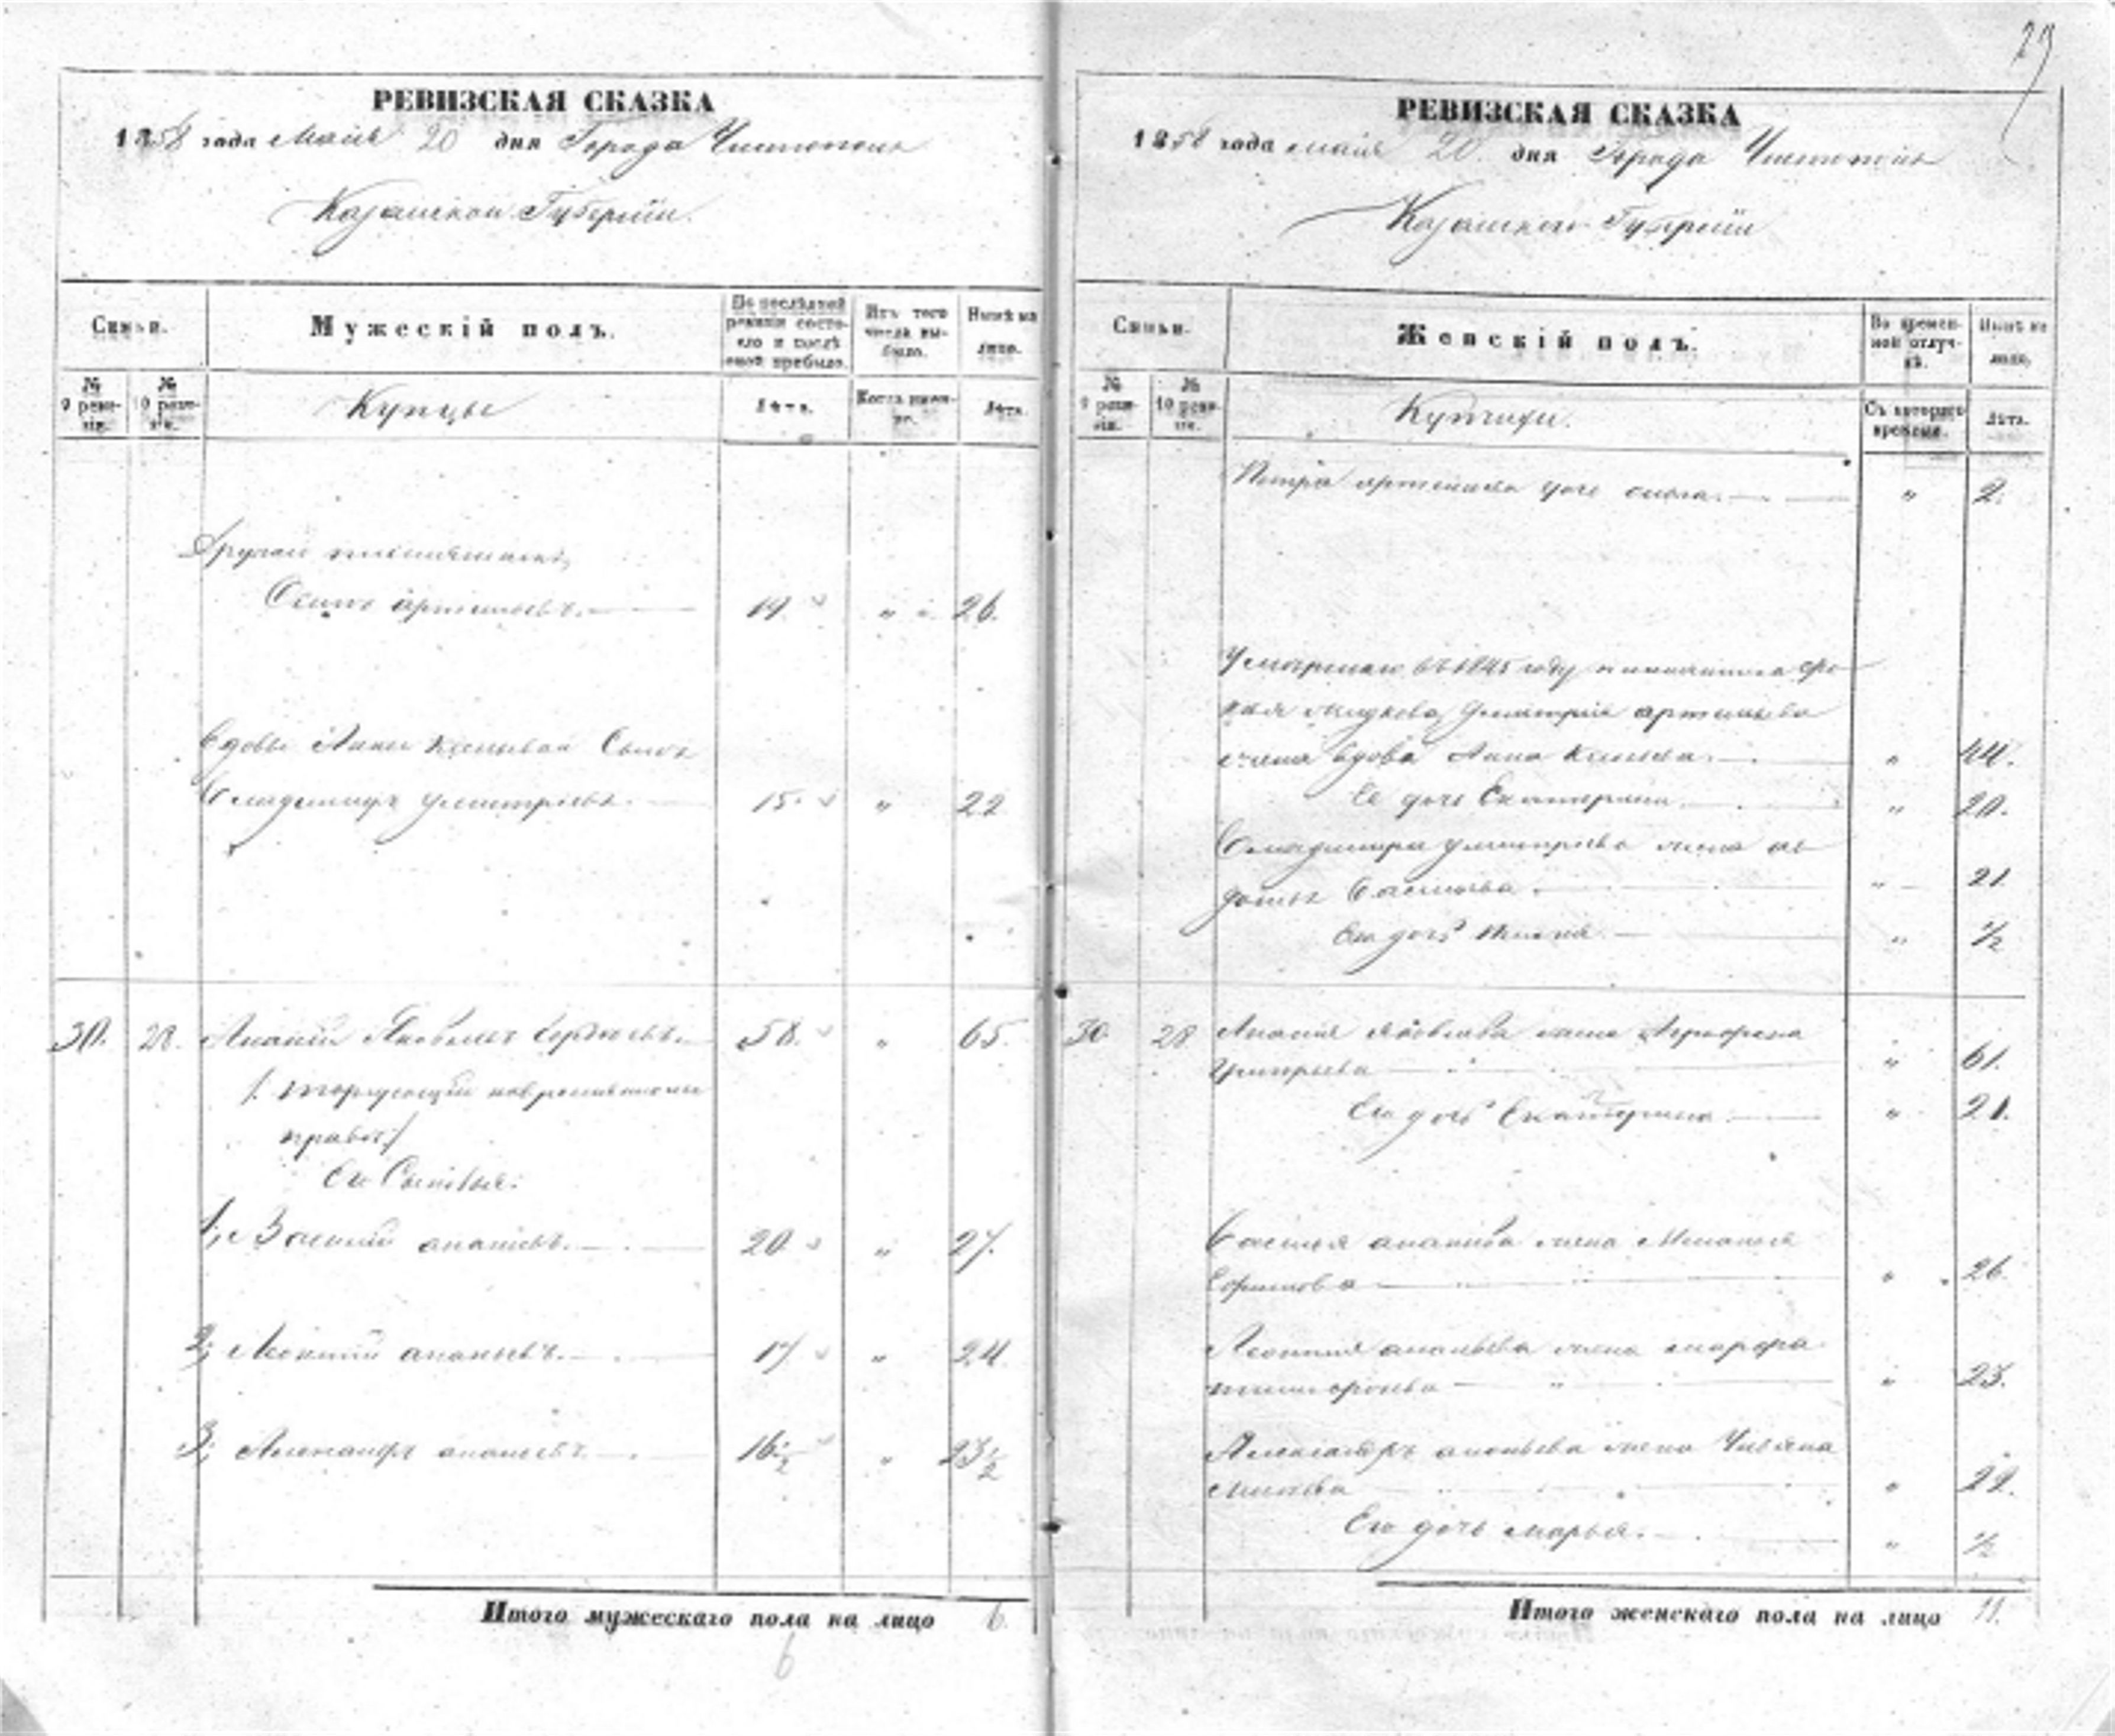 29
РЕВИЗСКАЯ СКАЗКА
1858 года Маія 20 дня Города Чистополя
Казанской Губерніи.
Семьи.
Мужескій полъ.
По послѣдней ревизіи состояло и послѣ оной прибыло.
Изъ того числа выбыло.
Нынѣ на лицо.
№ 9 ревизіи.
№ 10 ревизіи.
Купцы
Лѣта.
Когда именно.
Лѣта.
Другой
Осипъ Артемьевъ. 19. " 26.
Вдовы Анны Сынъ
Владимиръ Дмитріевъ. 15. " 22
30. 28. Ананій Яковлевъ 58. " 65.
/. торгующій
правѣ/
Его Сыновья:
1, Василій ананьевъ. 20. " 27.
2, Леонтій ананьевъ. 17 " 24.
3, Александръ ананьевъ. 16½ " 23½
Итого мужескаго пола на лицо 6.
6
РЕВИЗСКАЯ СКАЗКА
1858 года маія 20. дня Города Чистополя
Казанской Губерніи
Семьи.
Женскій полъ.
Во временной отлучкѣ.
Нынѣ на лицо.
№ 9 ревизіи.
№ 10 ревизіи.
Купчихи.
Съ котораго времени.
Лѣта.
Петра артемьева дочь " 2.
Умершаго въ 1845 году
Дмитрія артемьева
жена вдова Анна " 44.
Ее дочь Екатерина " 20.
Владимира Дмитріева жена ав
дотья Васильева. " 21
Его дочь " ½
30. 28 Ананія Яковлева жена Аграфена
Григорьева " 61.
Его дочь Екатерина. " 21.
Василья ананьева жена
Ефимова " 26.
Леонтія ананьева жена марфа
тимофеева " 23.
Александръ ананьева жена
" 22.
Его дочь марья. " ½
Итого женскаго пола на лицо 11.